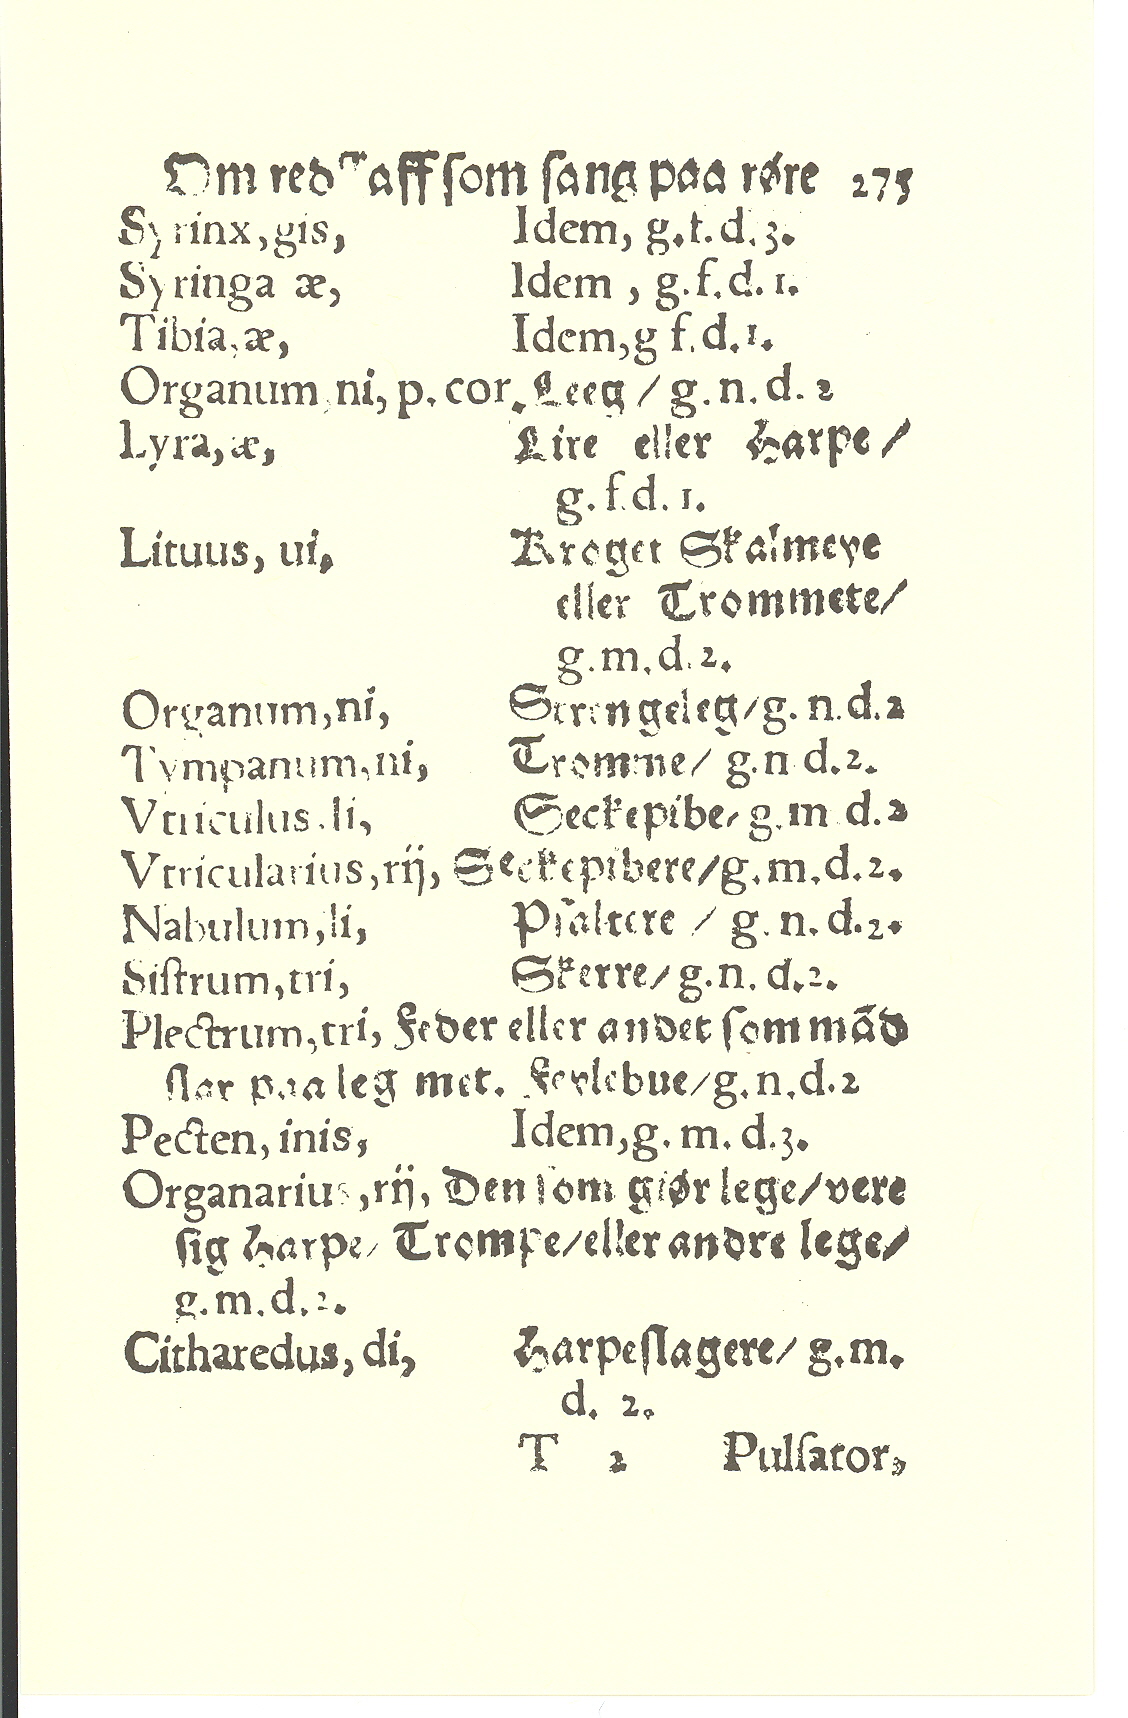 Om red aff som sang paa røre 275
Syrinx, gis, Idem, g.f.d.3.
Syringa æ, Idem , g.f.d.1.
Tibia, æ, Idem, g f.d.1.
Organum, ni, p. cor. Leeg / g.n.d.2
Lyra, æ, Lire eller Harpe/
g.f.d.1.
Lituus, ui, Kroget Skalmeye
eller Trommete/
g.m.d.2.
Organum, ni, Strengeleg/g.n.d.2
Tympanum, ni, Tromme/ g.n d.2.
Vtriculus, li, Seckepibe/ g.m d.2
Vtricularius, rij, Seckepibere/g.m.d.2.
Nabulum, li, Psaltere / g.n.d.2.
Siſtrum, tri, Skerre/g.n.d.2.
Plectrum, tri, Feder eller andet ſom mãd
ſlar paa leg met. Feylebue/g.n.d.2
Pecten, inis, Idem, g.m.d.3.
Organarius, rij, Den ſom giør lege/vere
ſig Harpe/ Trompe/eller andre lege/
g.m.d.2.
Citharedus, di, Harpeſlagere/ g.m.
d. 2.
T 2 Pulſator,